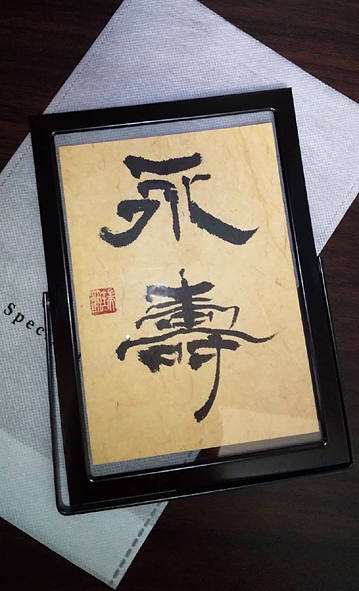 永
壽
Spec